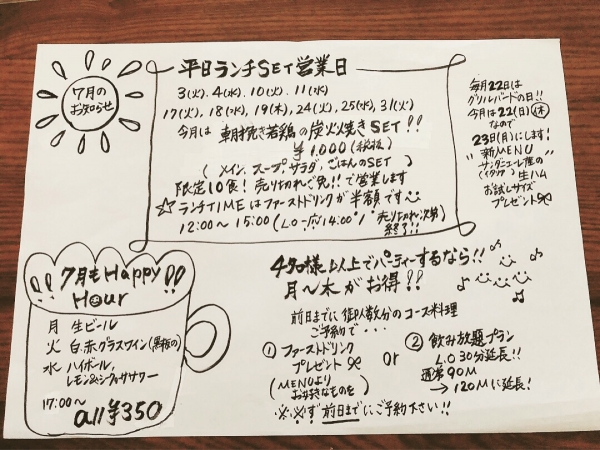 7月の
お知らせ
平日ランチSET営業日
3(火)、4(水)、10(火)、11(水)
17(火)、18(水)、19(木)、24(火)、25(水)、31(火)
今月は 朝挽き若鶏の炭火焼きSET!!
¥1,000(税抜)
(メイン、スープ、サラダ、ごはんのSET)
限定10食!売り切れご免!!で営業します
☆ランチTIMEはファーストドリンクが半額です
12:00〜15:00(L.O 14:00 売り切れ次第
終了!!
毎月22日は
グリルバードの日!!
今月は22(日)休
なので
23日(月)にします!
"新MENU
サンダニエーレ産の
(イタリア)生ハム
お試しサイズ
プレゼント
!!7月もHappy!!
Hour
月 生ビール
火 白、赤グラスワイン(黒板の)
水 ハイボール、
レモン&シークヮサワー
17:00〜
all ¥350
4名様以上でパーティーするなら!!
月〜木がお得!!
前日までに御人数分のコース料理
ご予約で・・・
① ファーストドリンク
プレゼント
(MENUより
お好きなものを)
or
② 飲み放題プラン
L.O 30分延長!!
通常90M
→120Mに延長!
※必ず前日までにご予約下さい!!